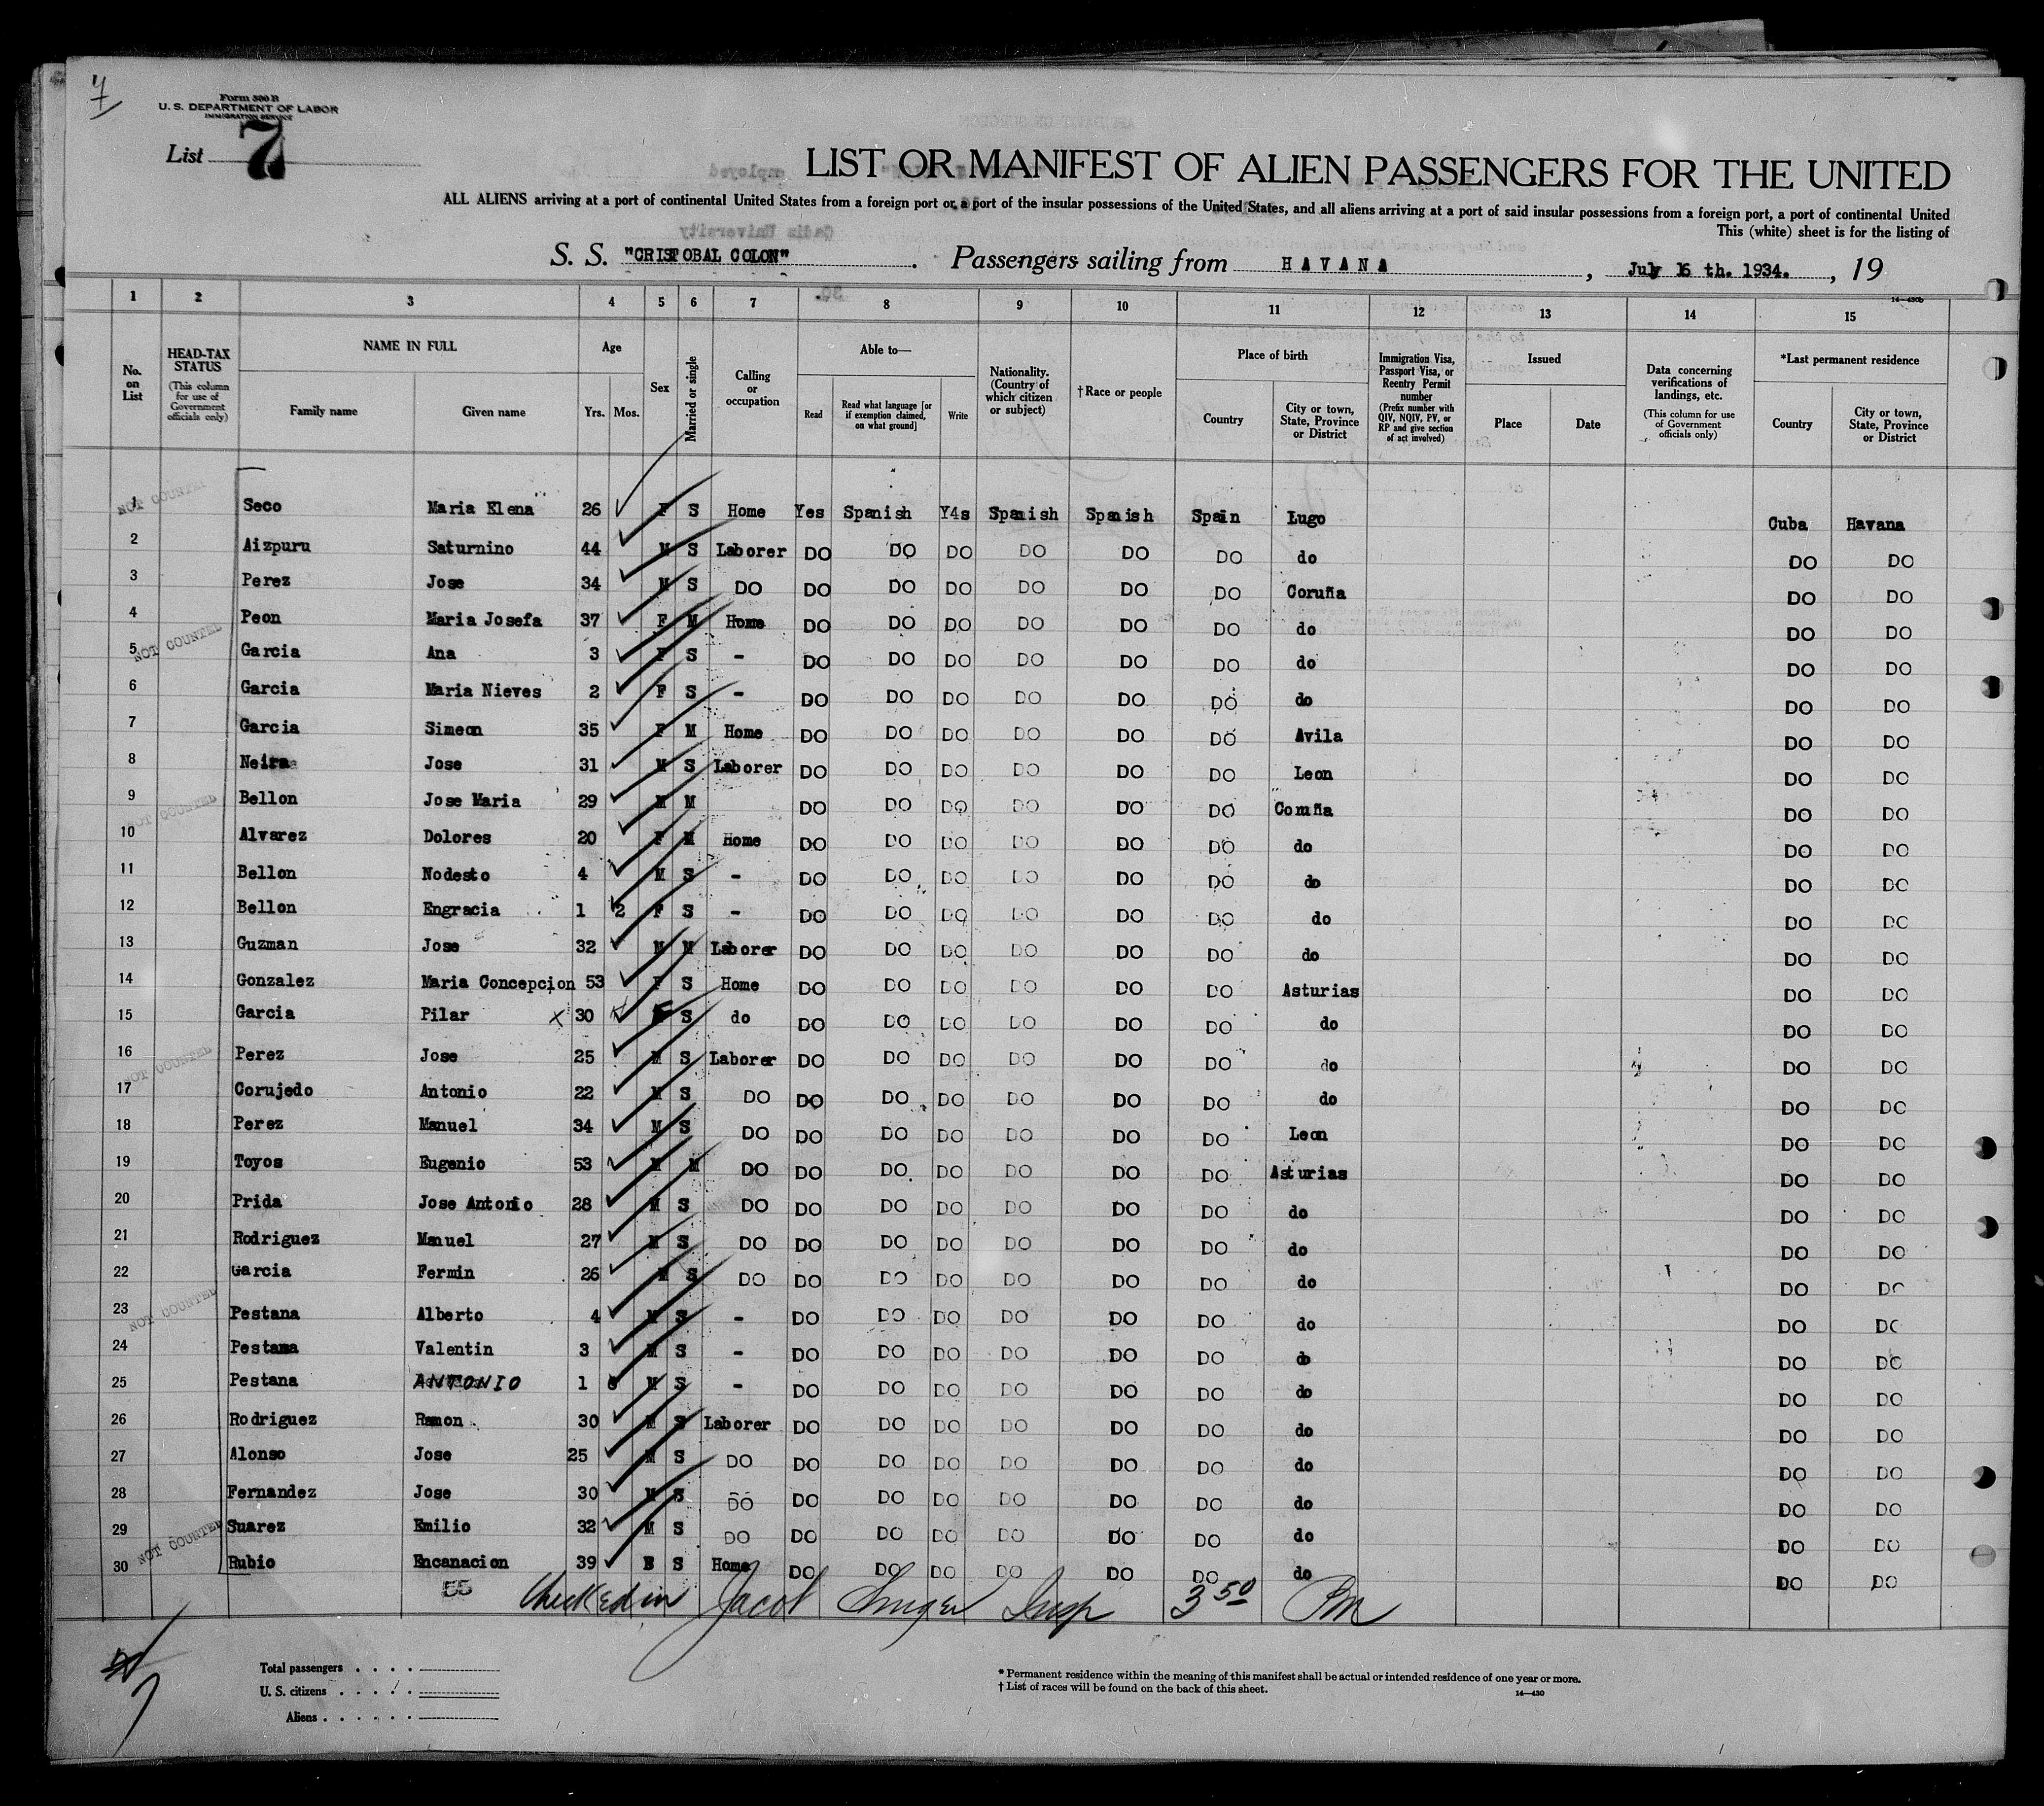 7
Form 500 B
U. S. DEPARTMENT OF LABOR
IMMIGRATION SERVICE
List 7
LIST OR MANIFEST OF ALIEN PASSENGERS FOR THE UNITED
ALL ALIENS arriving at a port of continental United States from a foreign port or a port of the insular possessions of the United States, and all aliens arriving at a port of said insular possessions from a foreign port, a port of continental United
This (white) sheet is for the listing of
S. S. "CRISTOBAL COLON". Passengers sailing from HAVANA, July 16 th. 1934., 19
14—430b
1 2 3 4 5 6 7 8 9 10 11 12 13 14 15
No. on List HEAD-TAX STATUS (This column for use of Government officials only) NAME IN FULL Family name Given name Age Yrs. Mos. Sex Married or single Calling or occupation Able to— Read Read what language [or if exemption claimed, on what ground] Write Nationality. (Country of which citizen or subject) †Race or people Place of birth Country City or town, State, Province or District Immigration Visa, Passport Visa, or Reentry Permit number (Prefix number with QIV, NQIV, PV, or RP and give section of act involved) Issued Place Date Data concerning verifications of landings, etc. (This column for use of Government officials only) *Last permanent residence Country City or town, State, Province or District
NOT COUNTED
1 Seco Maria Elena 26 F S Home Yes Spanish Y4s Spanish Spanish Spain Lugo Cuba Havana
2 Aizpuru Saturnino 44 M S Laborer DO DO DO DO DO DO do DO DO
3 Perez Jose 34 M S DO DO DO DO DO DO DO Coruña DO DO
4 Peon Maria Josefa 37 F M Home DO DO DO DO DO DO do DO DO
NOT COUNTED
5 Garcia Ana 3 F S - DO DO DO DO DO DO do DO DO
6 Garcia Maria Nieves 2 F S - DO DO DO DO DO DO do DO DO
7 Garcia Simeon 35 F M Home DO DO DO DO DO DO Avila DO DO
8 Neira Jose 31 M S Laborer DO DO DO DO DO DO Leon DO DO
9 Bellon Jose Maria 29 M M DO DO DO DO DO DO Coruña DO DO
NOT COUNTED
10 Alvarez Dolores 20 F M Home DO DO DO DO DO DO do DO DO
11 Bellon Nodesto 4 M S - DO DO DO DO DO DO do DO DO
12 Bellon Engracia 1 2 F S - DO DO DO DO DO DO do DO DO
13 Guzman Jose 32 M M Laborer DO DO DO DO DO DO do DO DO
14 Gonzalez Maria Concepcion 53 F S Home DO DO DO DO DO DO Asturias DO DO
15 Garcia Pilar x 30 F S do DO DO DO DO DO DO do DO DO
16 Perez Jose 25 M S Laborer DO DO DO DO DO DO do DO DO
NOT COUNTED
17 Corujedo Antonio 22 M S DO DO DO DO DO DO DO do DO DO
18 Perez Manuel 34 M S DO DO DO DO DO DO DO Leon DO DO
19 Toyos Eugenio 53 M M DO DO DO DO DO DO DO Asturias DO DO
20 Prida Jose Antonio 28 M S DO DO DO DO DO DO DO do DO DO
21 Rodriguez Manuel 27 M S DO DO DO DO DO DO DO do DO DO
22 Garcia Fermin 26 M S DO DO DO DO DO DO DO do DO DO
23 Pestana Alberto 4 M S - DO DO DO DO DO DO do DO DO
NOT COUNTED
24 Pestana Valentin 3 M S - DO DO DO DO DO DO do DO DO
25 Pestana ANTONIO 1 M S - DO DO DO DO DO DO do DO DO
26 Rodriguez Ramon 30 M S Laborer DO DO DO DO DO DO do DO DO
27 Alonso Jose 25 M S DO DO DO DO DO DO DO do DO DO
28 Fernandez Jose 30 M S DO DO DO DO DO DO DO do DO DO
29 Suarez Emilio 32 M S DO DO DO DO DO DO DO do DO DO
NOT COUNTED
30 Rubio Encanacion 39 S Home DO DO DO DO DO DO do DO DO
55 Checked in Jacob Insp 3 50 Pm
Total passengers
U. S. citizens
Aliens
* Permanent residence within the meaning of this manifest shall be actual or intended residence of one year or more.
† List of races will be found on the back of this sheet.
14—430
7